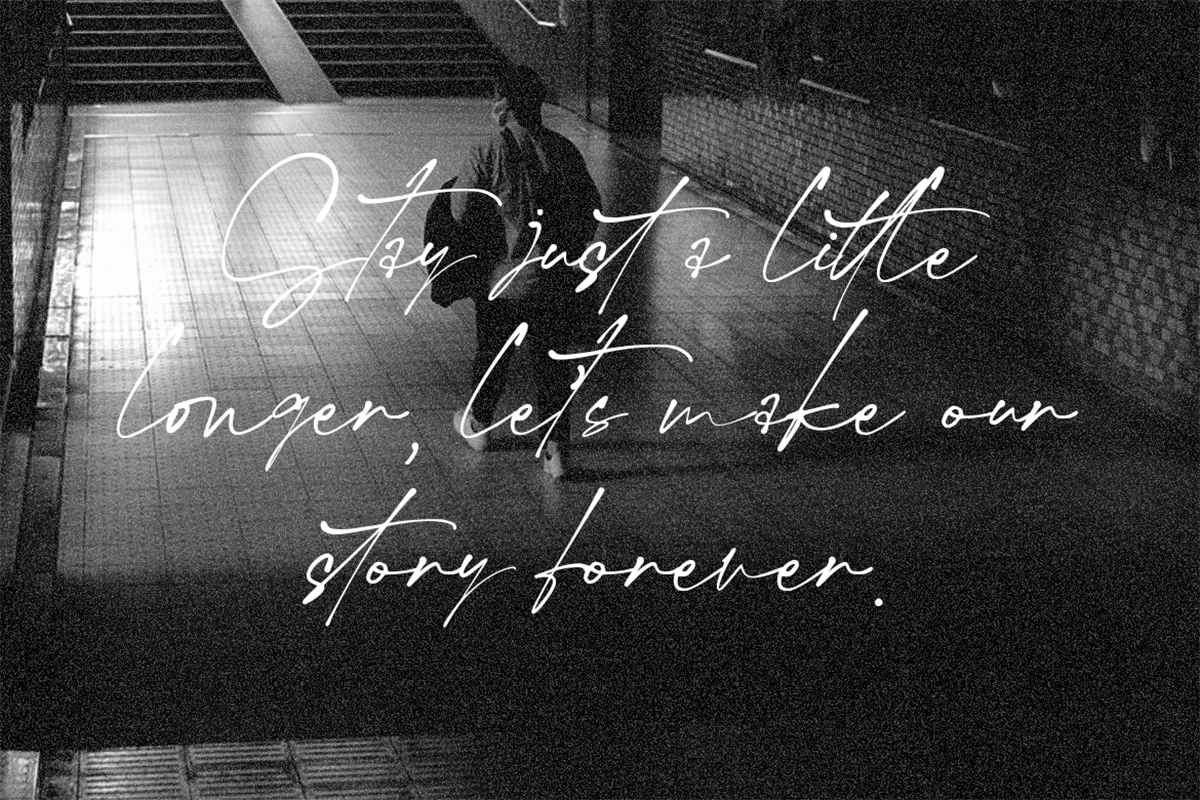 Stay just a little
longer, let's make our
story forever.